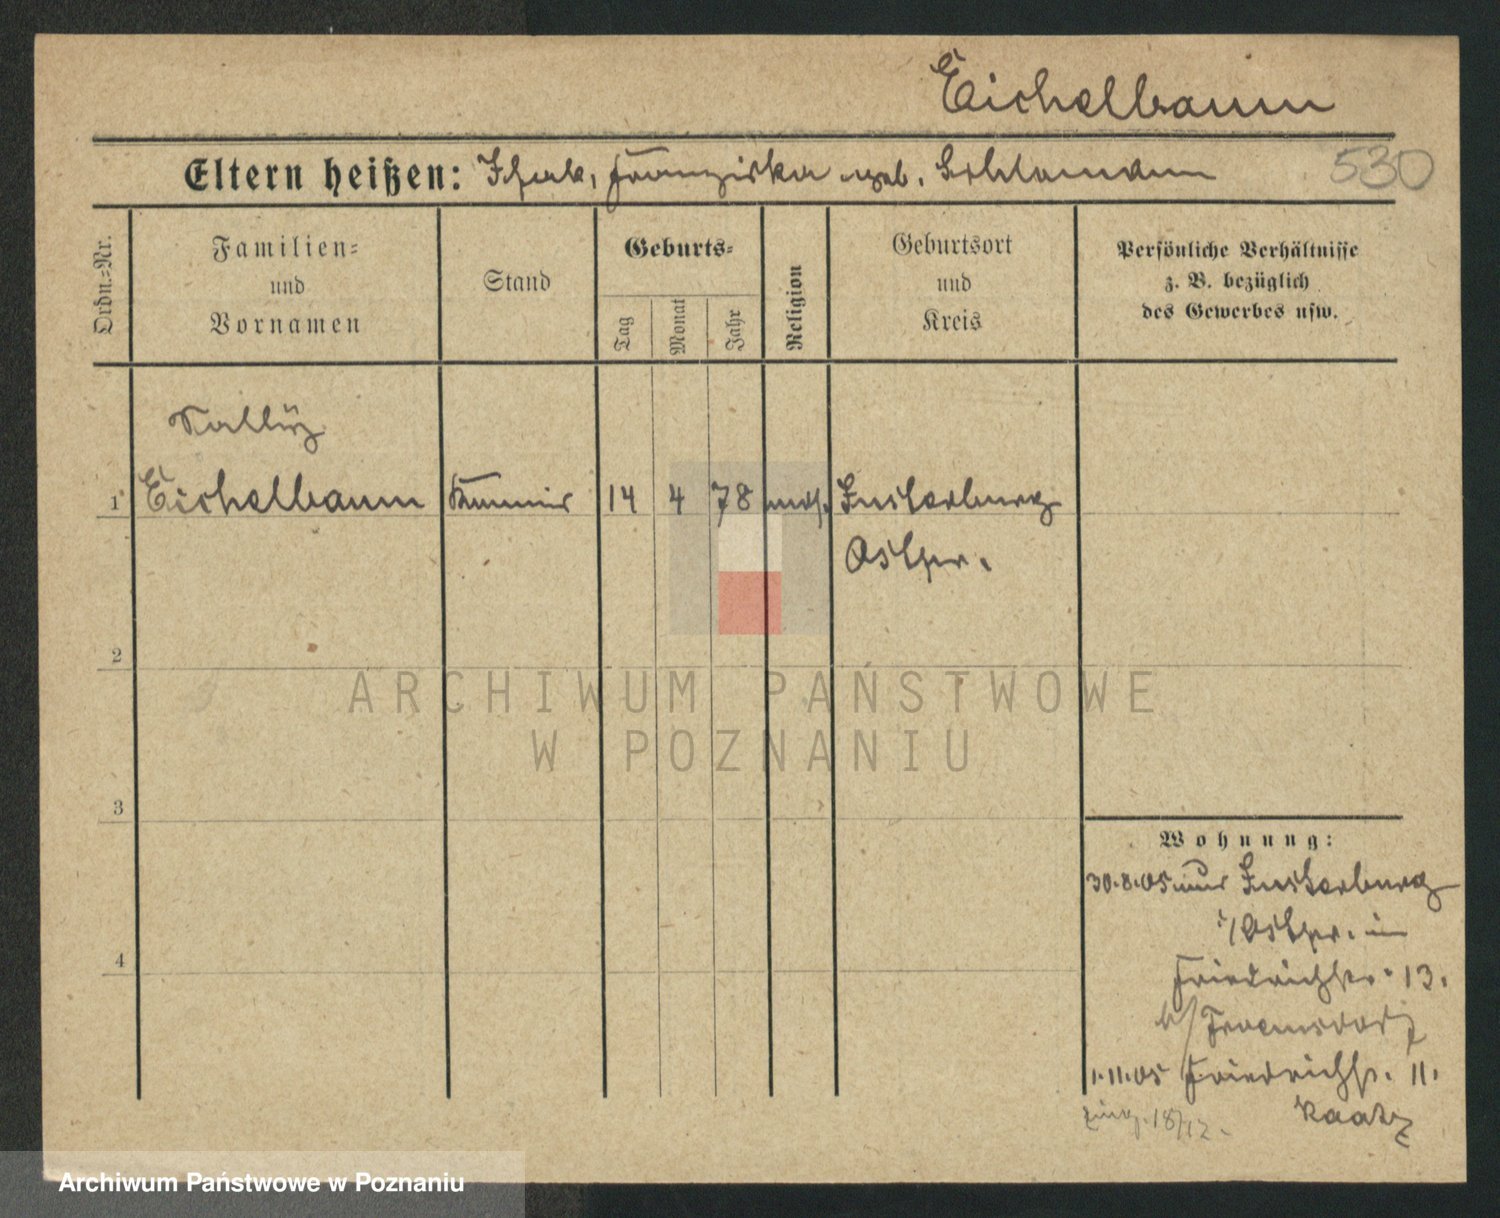 Eichelbaum
Eltern heißen: Jsak, Franziska geb. 530
Ordn.=Nr.
Familien=
und
Vornamen
Stand
Geburts=
Tag
Monat
Jahr
Religion
Geburtsort
und
Kreis
Persönliche Verhältnisse
z. B. bezüglich
des Gewerbes usw.
1 Eichelbaum 14 4 78 mos. Insterburg
Ostpr.
2
3
4
Wohnung:
30.8.05 aus Insterburg
i/Ostpr. in
Friedrichstr. 13.
b/
1.11.05 Friedrichstr. 11.
Kaatz
18/12.
ARCHIWUM PAŃSTWOWE
W POZNANIU
Archiwum Państwowe w Poznaniu